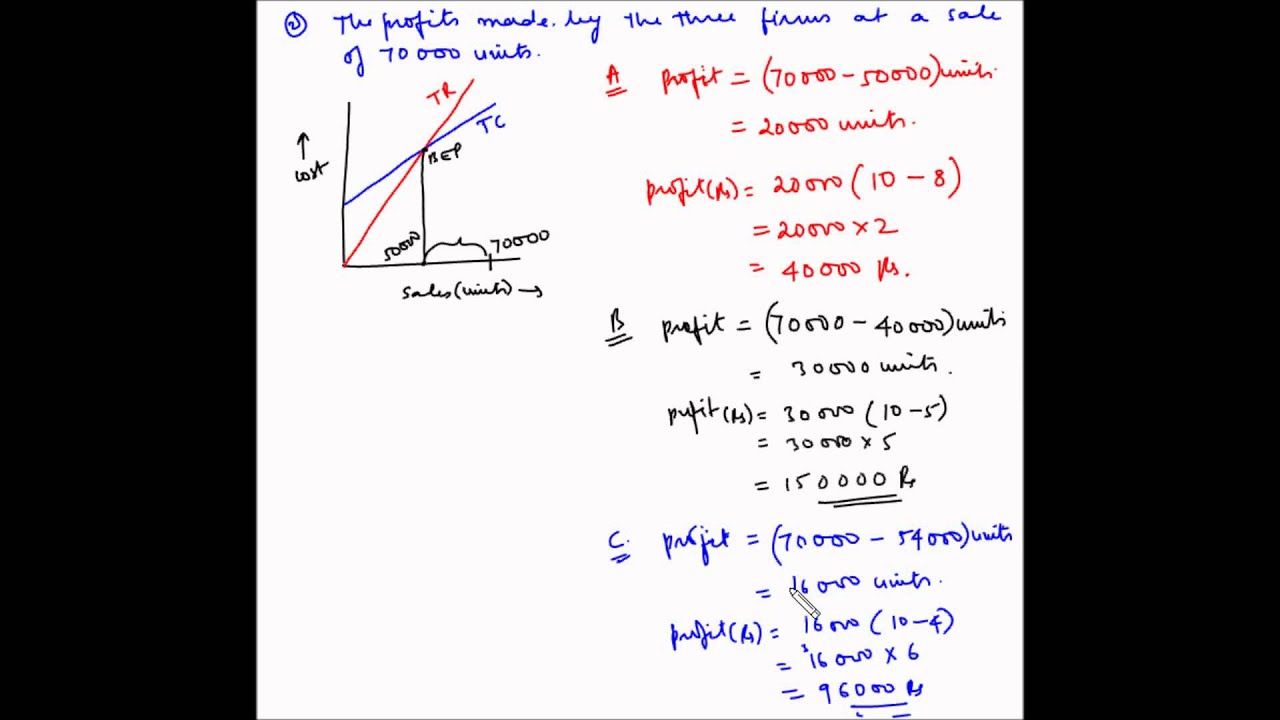 ② The profits made by the three firms at a sale
of 70000 units.
TR
TC
BEP
↑
cost
50000
70000
Sales(units) →
A profit = (70000 - 50000) units.
= 20000 units.
profit(Rs) = 20000 (10 - 8)
= 20000 × 2
= 40000 Rs.
B profit = (70000 - 40000) units
= 30000 units.
profit(Rs) = 30000 (10 - 5)
= 30000 × 5
= 150000 Rs
C. profit = (70000 - 54000) units
= 16000 units.
profit(Rs) = 16000 (10 - 4)
= 16000 × 6
= 96000 Rs